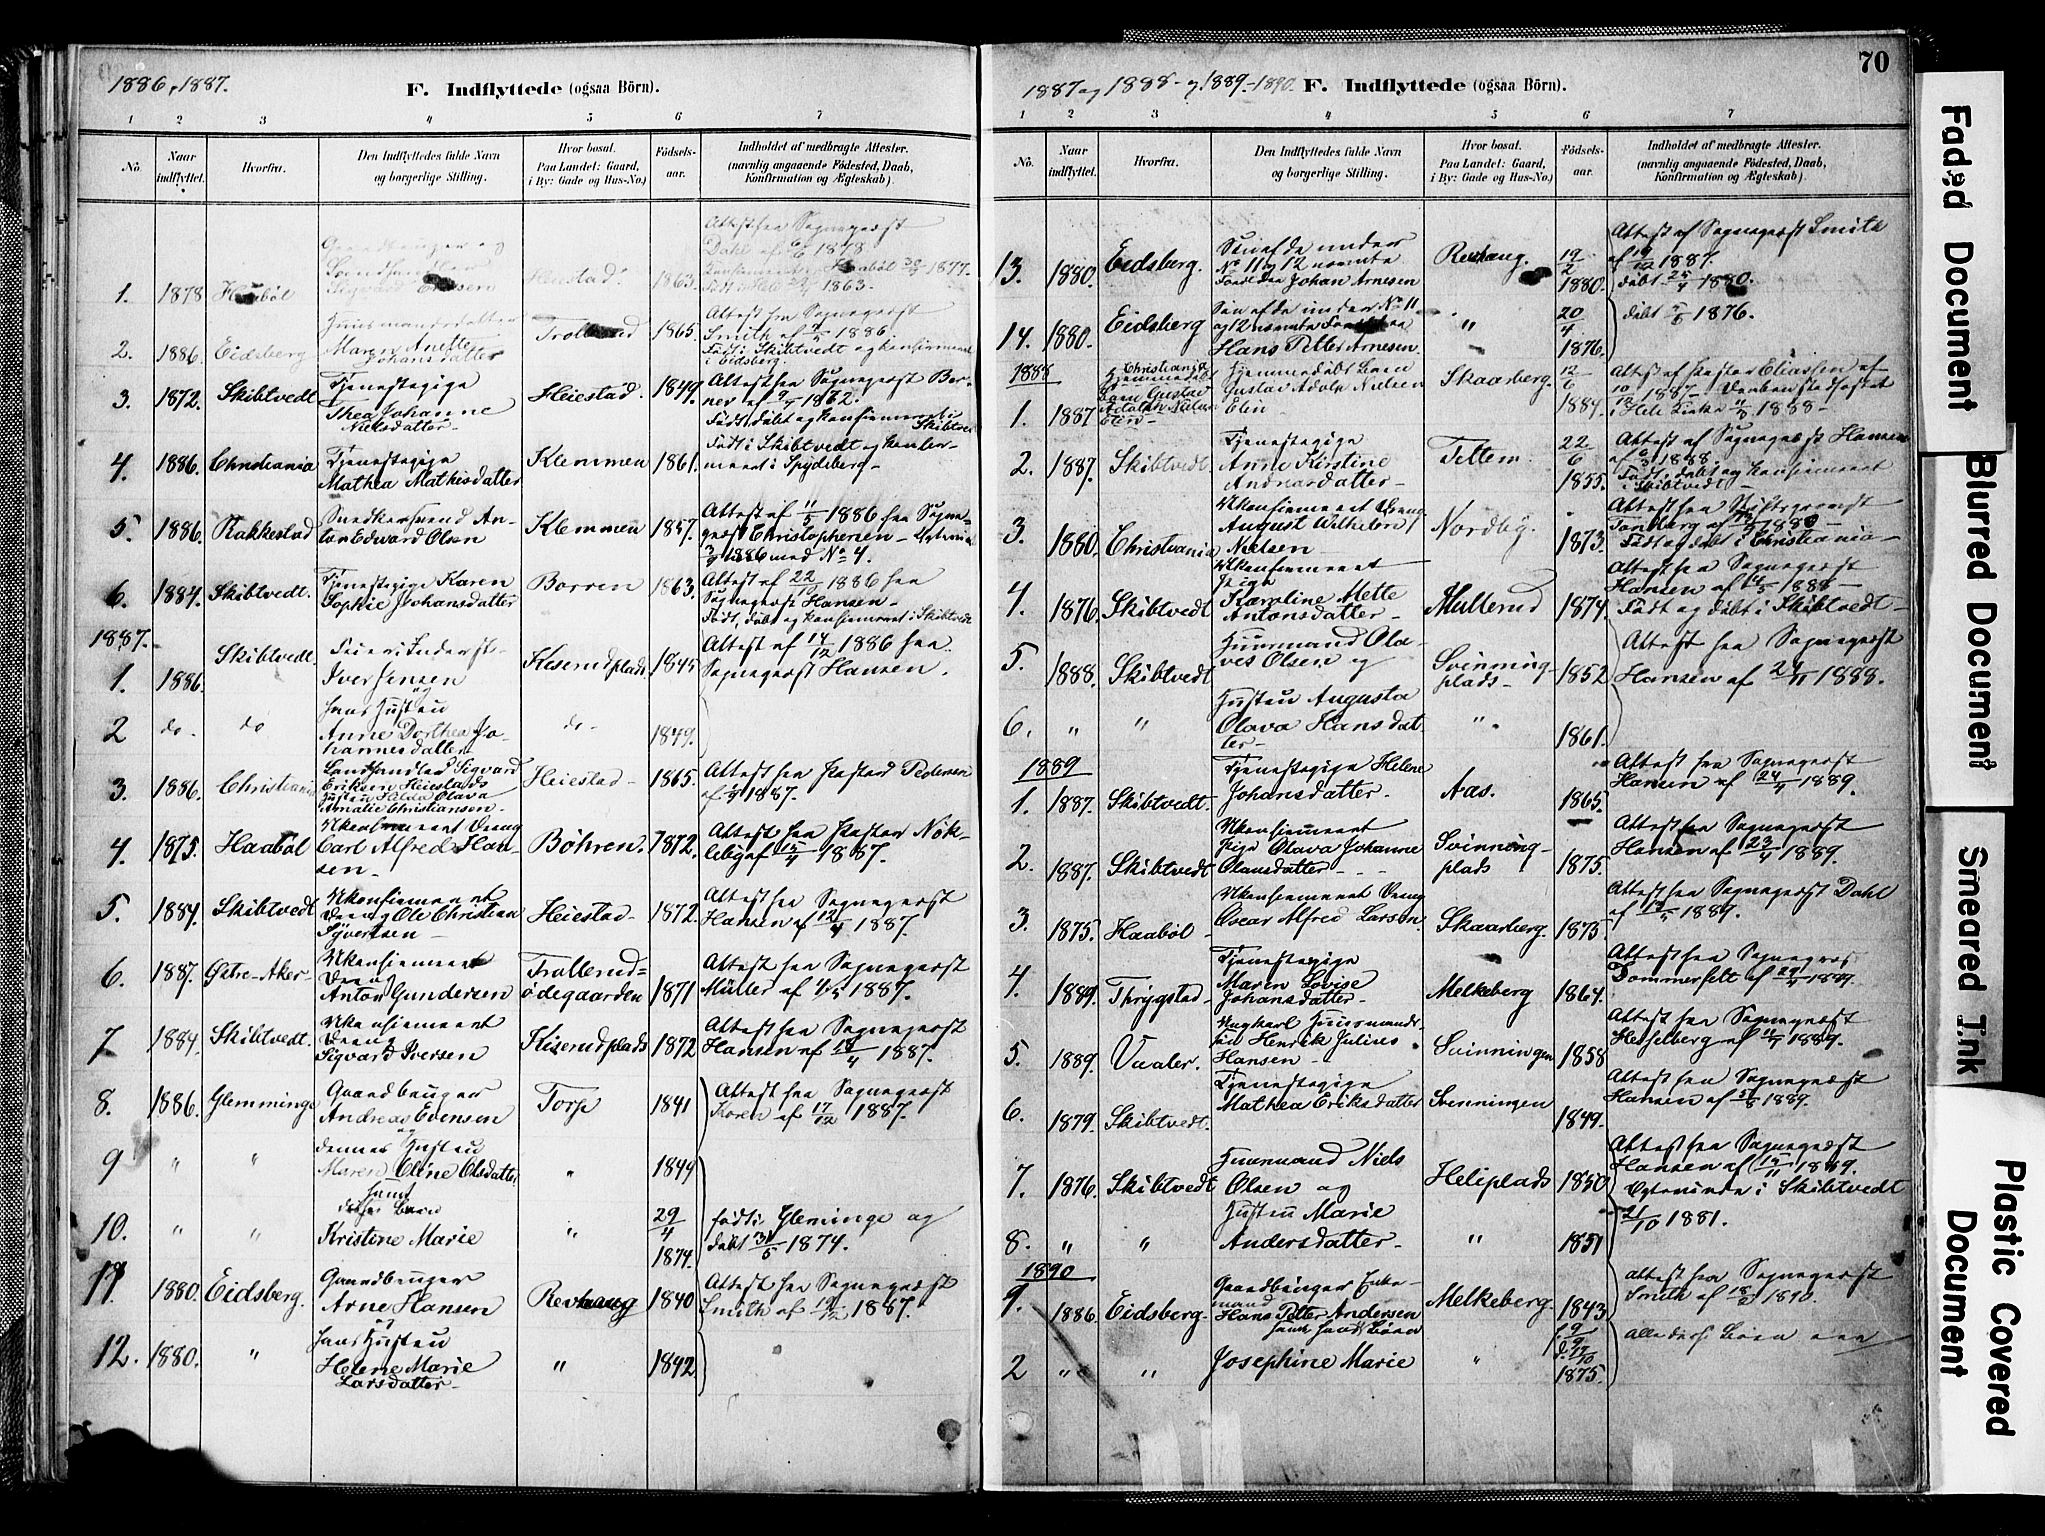 1886, 1887.
F. Indflyttede (ogsaa Börn).
1 2 3 4 5 6 7
No.
Naar indflyttet.
Hvorfra.
Den Indflyttedes fulde Navn og borgerlige Stilling.
Hvor bosat. Paa Landet: Gaard, i By: Gade og Hus-No.)
Födsels-aar.
Indholdet af medbragte Attester. (navnlig angaaende Födested, Daab, Konfirmation og Ægteskab).
1. 1878 Haabøl Gaardbruger og
Sigvard Eriksen Heiestad 1863.
Attest fra Sogneprest
Dahl af 1878
Haabøl 1877.
1863.
2. 1886. Eidsberg Huusmandsdatter
Maren Anette
Johansdatter Trollerud 1865.
Attest fra Sogneprest
Smith af 1886
Født i Skibtvedt og konfirmeret
i Eidsberg
3. 1872. Skibtvedt Tjenestepige
Thea Johanne
Nielsdatter Heiestad. 1849.
Attest fra Sogneprest
af 1862.
Født, døbt og konfirmeret i
Skibtvedt
4. 1886. Christiania Tjenestepige
Mathea Mathisdatter Klemmen 1861.
Født i Skibtvedt og konfir-
meret i Spydeberg
5. 1886. Rakkestad Snedkersvend An-
ton Edvard Olsen Klemmen 1857.
Attest af 11/5 1886 fra Sogne-
prest Christophersen
1886 med No 4.
6. 1884. Skibtvedt. Tjenestepige Karen
Sophie Johansdatter Borren 1863.
Attest af 1886 fra
Sogneprest Hansen
Født, døbt og konfirmeret i Skibtvedt
1887.
1. 1886. Skibtvedt. Iver Jensen Kiserudplads 1845
Attest af 14/12 1886 fra
Sogneprest Hansen.
2 do. do og
hans Hustru
Anne Dorthea Jo-
hannesdatter do 1849.
3. 1886. Christiania Landhandler Sigvard
Eriksen Heiestads
Hustru Olava
Amalie Christiansen Heiestad 1865.
Attest fra Pastor Pedersen
af 1887.
4. 1875. Haabøl Ukonfirmeret Dreng
Carl Alfred Han-
sen Böhren. 1872.
Attest fra Pastor Nøk-
leby af 15/4 1887.
5. 1884. Skibtvedt Ukonfirmeret
Dreng Ole Christian
Syvertsen Heiestad 1872.
Attest fra Sogneprest
Hansen af 12/4 1887.
6. 1887. Østre-Aker Ukonfirmeret
Dreng
Anton Gundersen Trollerud=
ødegaarden 1871
Attest fra Sogneprest
Müller af 4/5 1887.
7 1884. Skibtvedt. Ukonfirmeret
Dreng
Sigvard Iversen Kiserudplads 1872
Attest fra Sogneprest
Hansen af 1887.
8. 1886. Glemminge Gaardbruger
Andreas Evensen Torp 1841
Attest fra Sogneprest
Koren af 17/12 1887.
9 " " og
dennes Hustru
Maren Oline Olsdatter " 1844
10. " " samt
deres Barn
Kristine Marie " 29/4 1874.
født i Gleminge og
døbt 31/5 1874.
11. 1880. Eidsberg. Gaardbruger
Arne Hansen Revhaug 1840
Attest fra Sogneprest
Smith af 19/12 1887.
12. 1880. " og
hans Hustru
Helene Marie
Larsdatter " 1842
1887 og 1888 og 1889-1890.
F. Indflyttede (ogsaa Börn).
70
1 2 3 4 5 6 7
No.
Naar indflyttet.
Hvorfra.
Den Indflyttedes fulde Navn og borgerlige Stilling.
Hvor bosat. Paa Landet: Gaard, i By: Gade og Hus-No.)
Födsels-aar.
Indholdet af medbragte Attester. (navnlig angaaende Födested, Daab, Konfirmation og Ægteskab).
13. 1880. Eidsberg. Søn af de under
No 11 og 12 nævnte
Forældre Johan Arnesen Revhaug. 19/2 1880.
Attest af Sogneprest Smith
af 19/12 1887.
døbt 25/4 1880.
14. 1880. Eidsberg Søn af de under No 11
og 12 nævnte Forældre
Hans Petter Arnesen. " 20/4 1876.
døbt 1876.
1888
1. 1887 Christiania
Hjemmedøbt
Barn Gustav
Adolph Nielsen
Elin
Hjemmedøbt Barn
Gustav Adolp Nielsen
Elin Skaarberg. 12/6 1884.
Attest af Pastor Eliassen af
10/12 1887. Daaben stadfæstet
i Heli Kirke 1888
2. 1887. Skibtvedt Tjenestepige
Anne Kirstine
Andreasdatter Tettem. 22/6 1855.
Attest af Sogneprest Hansen
af 1888
Født, døbt og konfirmeret
i Skibtvedt
3. 1880. Christiania Ukonfirmeret Dreng
August Wilhelm
Nielsen Nordby. 1873.
Attest fra Stiftsprovst
Tandberg af 1888
Født og døbt i Christiania
4. 1876. Skibtvedt Ukonfirmeret
Pige
Karoline Mette
Antonsdatter Mullerud 1874.
Attest fra Sogneprest
Hansen af 1888
Født og døbt i Skibtvedt
5. 1888. Skibtvedt Huusmand Ola-
ves Olsen og Svinning-
plads 1852
Attest fra Sogneprest
Hansen af 24/11 1888.
6. " " Hustru Augusta
Olava Hansdat-
ter " 1861.
1889
1. 1887. Skibtvedt. Tjenestepige Helene
Johansdatter Aas. 1865.
Attest fra Sogneprest
Hansen af 24/4 1889.
2. 1887. Skibtvedt Ukonfirmeret
Pige Olava Johanne
Olausdatter Svinning-
plads 1875.
Attest fra Sogneprest
Hansen af 23/4 1889.
3. 1875. Haabøl Ukonfirmeret Dreng
Oscar Alfred Larsen Skaarberg. 1875.
Attest fra Sogneprest Dahl
af 1889.
4. 1889. Thrygstad Tjenestepige
Maren Lovise
Johansdatter Melkeberg 1864.
Attest fra Sognepres
Dommerfelt af 1889.
5. 1889. Vaaler. Ungkarl Huusmands-
søn Henrik Julius
Hansen Svinningen 1858
Attest fra Sogneprest
Hesselberg af 1889.
6. 1879. Skibtvedt. Tjenestepige
Mathea Eriksdatter Svenningen 1849.
Attest fra Sogneprest
Hansen af 1889.
7. 1876. Skibtvedt Huusmand Niels
Olsen og Heliplads 1850
Attest fra Sogneprest
Hansen af 15/11 1889.
Ægteviede i Skibtvedt
21/10 1881.
8. " " Hustru Marie
Andersdatter " 1851
1890
1. 1886. Eidsberg. Gaardbruger Enke-
mand
Hans Petter Andersen
samt hans Børn Melkeberg. 1843
attest fra Sogneprest
Smith af 1890.
2 " " Josephine Marie " f. 9/9 d. 17/10 1875.
alle disse Børn ere
Faded Document
Blurred Document
Smeared Ink
Plastic Covered Document